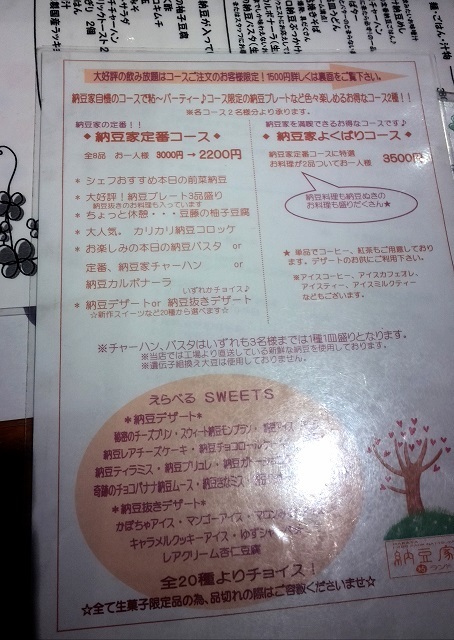 大好評の飲み放題はコースご注文のお客様限定！1500円詳しくは裏面をご覧下さい。
納豆家自慢のコースで粘〜パーティー♪コース限定の納豆プレートなど色々楽しめるお得なコース2種！！
※各コース2名様分より承ります。
納豆家の定番！！
◆ 納豆家定番コース ◆
全8品 お一人様 3000円 → 2200円
＊ シェフおすすめ本日の前菜納豆
＊ 大好評！納豆プレート3品盛り
納豆抜きのお料理も入っています
＊ ちょっと休憩・・・豆藤の柚子豆腐
＊ 大人気。 カリカリ納豆コロッケ
＊ お楽しみの本日の納豆パスタ or
定番、納豆家チャーハン or
納豆カルボナーラ いずれかチョイス♪
＊ 納豆デザートor 納豆抜きデザート
☆新作スイーツなど20種から選べます☆
納豆家を満喫できるお得なコースです♪
◆ 納豆家よくばりコース ◆
納豆家定番コースに特選
お料理が2品ついてお一人様 3500円
納豆料理も納豆ぬきの
お料理も盛りだくさん★
★ 単品でコーヒー、紅茶もご用意しており
ます。デザートのお供にご利用下さい。
※アイスコーヒー、アイスカフェオレ、
アイスティー、アイスミルクティー
などもございます。
※チャーハン、パスタはいずれも3名様までは1種1皿盛りとなります。
※当店では工場より直送している新鮮な納豆を使用しております。
※遺伝子組換え大豆は使用しておりません。
えらべる SWEETS
＊納豆デザート＊
秘密のチーズプリン・スウィート納豆モンブラン・
納豆レアチーズケーキ・納豆チョコロール
納豆ティラミス・納豆ブリュレ・納豆ガトー
奇跡のチョコバナナ納豆ムース・
＊納豆抜きデザート＊
かぼちゃアイス・マンゴーアイス・マロン
キャラメルクッキーアイス・ゆずシャーベット
レアクリーム杏仁豆腐
全20種よりチョイス！
☆全て生菓子限定品の為、品切れの際はご容赦くださいませ☆